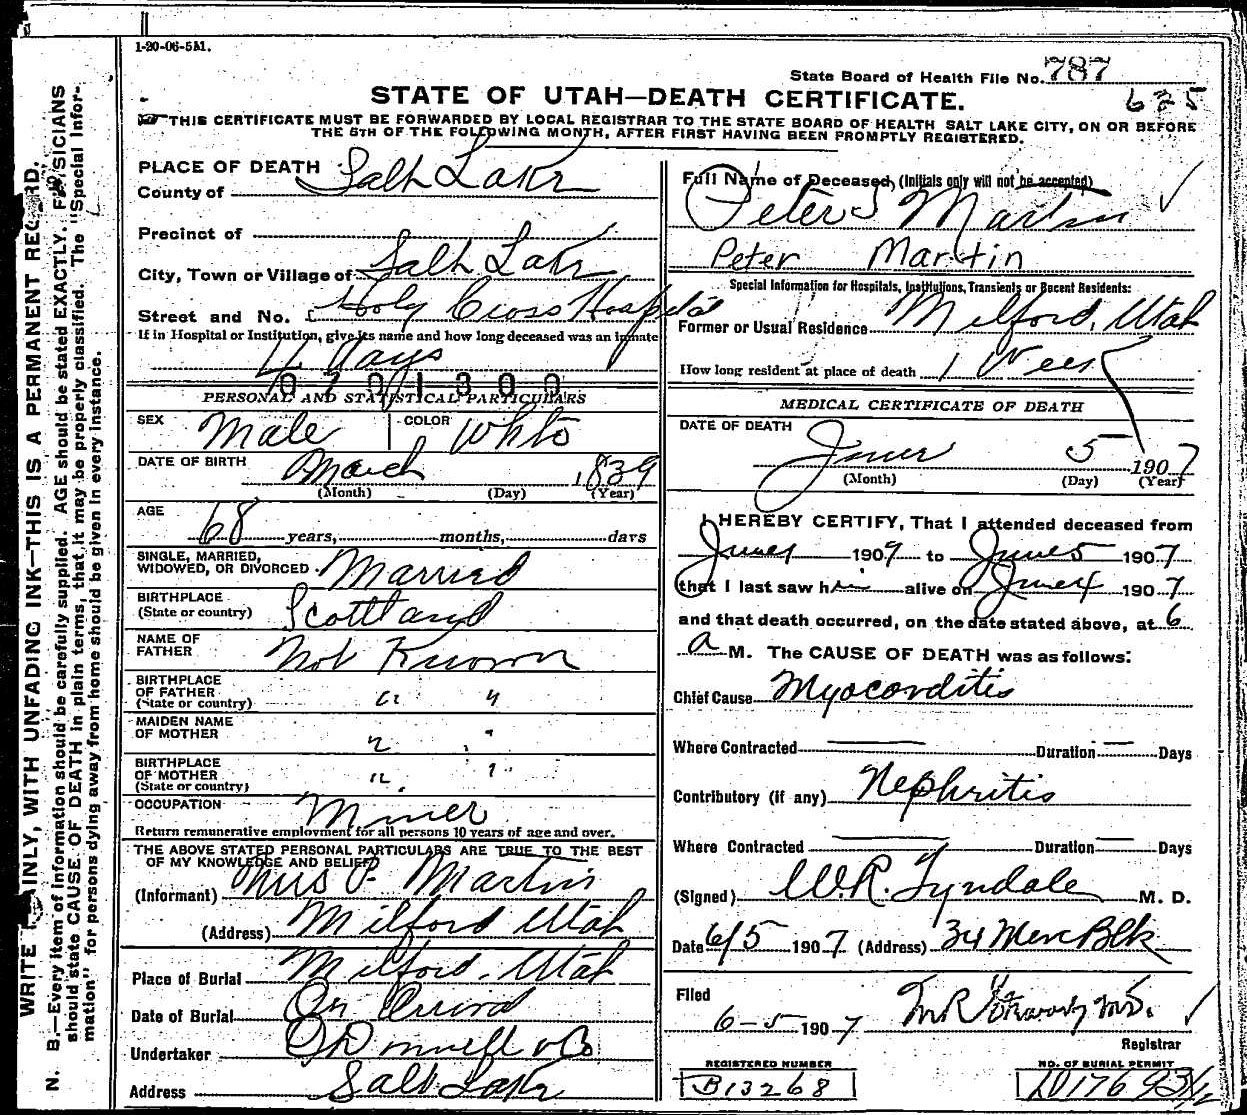 1-20-06-5M.
State Board of Health File No. 787
625
STATE OF UTAH—DEATH CERTIFICATE.
THIS CERTIFICATE MUST BE FORWARDED BY LOCAL REGISTRAR TO THE STATE BOARD OF HEALTH SALT LAKE CITY, ON OR BEFORE
THE 5TH OF THE FOLLOWING MONTH, AFTER FIRST HAVING BEEN PROMPTLY REGISTERED.
WRITE PLAINLY, WITH UNFADING INK—THIS IS A PERMANENT RECORD.
N. B.—Every item of information should be carefully supplied. AGE should be stated EXACTLY. PHYSICIANS
should state CAUSE OF DEATH in plain terms, that it may be properly classified. The "Special Infor-
mation" for persons dying away from home should be given in every instance.
PLACE OF DEATH
County of Salt Lake
Precinct of
City, Town or Village of Salt Lake
Street and No. Holy Cross Hospital
If in Hospital or Institution, give its name and how long deceased was an inmate
4 days
0701300
PERSONAL AND STATISTICAL PARTICULARS
SEX Male COLOR White
DATE OF BIRTH March 1839
(Month) (Day) (Year)
AGE
68 years, months, days
SINGLE, MARRIED,
WIDOWED, OR DIVORCED Married
BIRTHPLACE
(State or country) Scottland
NAME OF
FATHER Not Known
BIRTHPLACE
OF FATHER
(State or country) " "
MAIDEN NAME
OF MOTHER " "
BIRTHPLACE
OF MOTHER
(State or country) " "
OCCUPATION Miner
Return remunerative employment for all persons 10 years of age and over.
THE ABOVE STATED PERSONAL PARTICULARS ARE TRUE TO THE BEST
OF MY KNOWLEDGE AND BELIEF
(Informant) Mrs P. Martin
(Address) Milford Utah
Place of Burial Milford, Utah
Date of Burial On Arrival
Undertaker O'Donnell & Co
Address Salt Lake
Full Name of Deceased, (Initials only will not be accepted)
Peter S Martin
Peter Martin
Special Information for Hospitals, Institutions, Transients or Recent Residents:
Former or Usual Residence Milford, Utah
How long resident at place of death 1 Week
MEDICAL CERTIFICATE OF DEATH
DATE OF DEATH
June 5 1907
(Month) (Day) (Year)
I HEREBY CERTIFY, That I attended deceased from
June 1 1907 to June 5 1907
that I last saw him alive on June 4 1907
and that death occurred, on the date stated above, at 6
a M. The CAUSE OF DEATH was as follows:
Chief Cause Myocarditis
Where Contracted — Duration — Days
Contributory (if any) Nephritis
Where Contracted — Duration — Days
(Signed) W.R. Tyndale M. D.
Date 6/5 1907 (Address) 34 Mer Blk
Filed
6-5 1907
Registrar
REGISTERED NUMBER
B13268
NO. OF BURIAL PERMIT